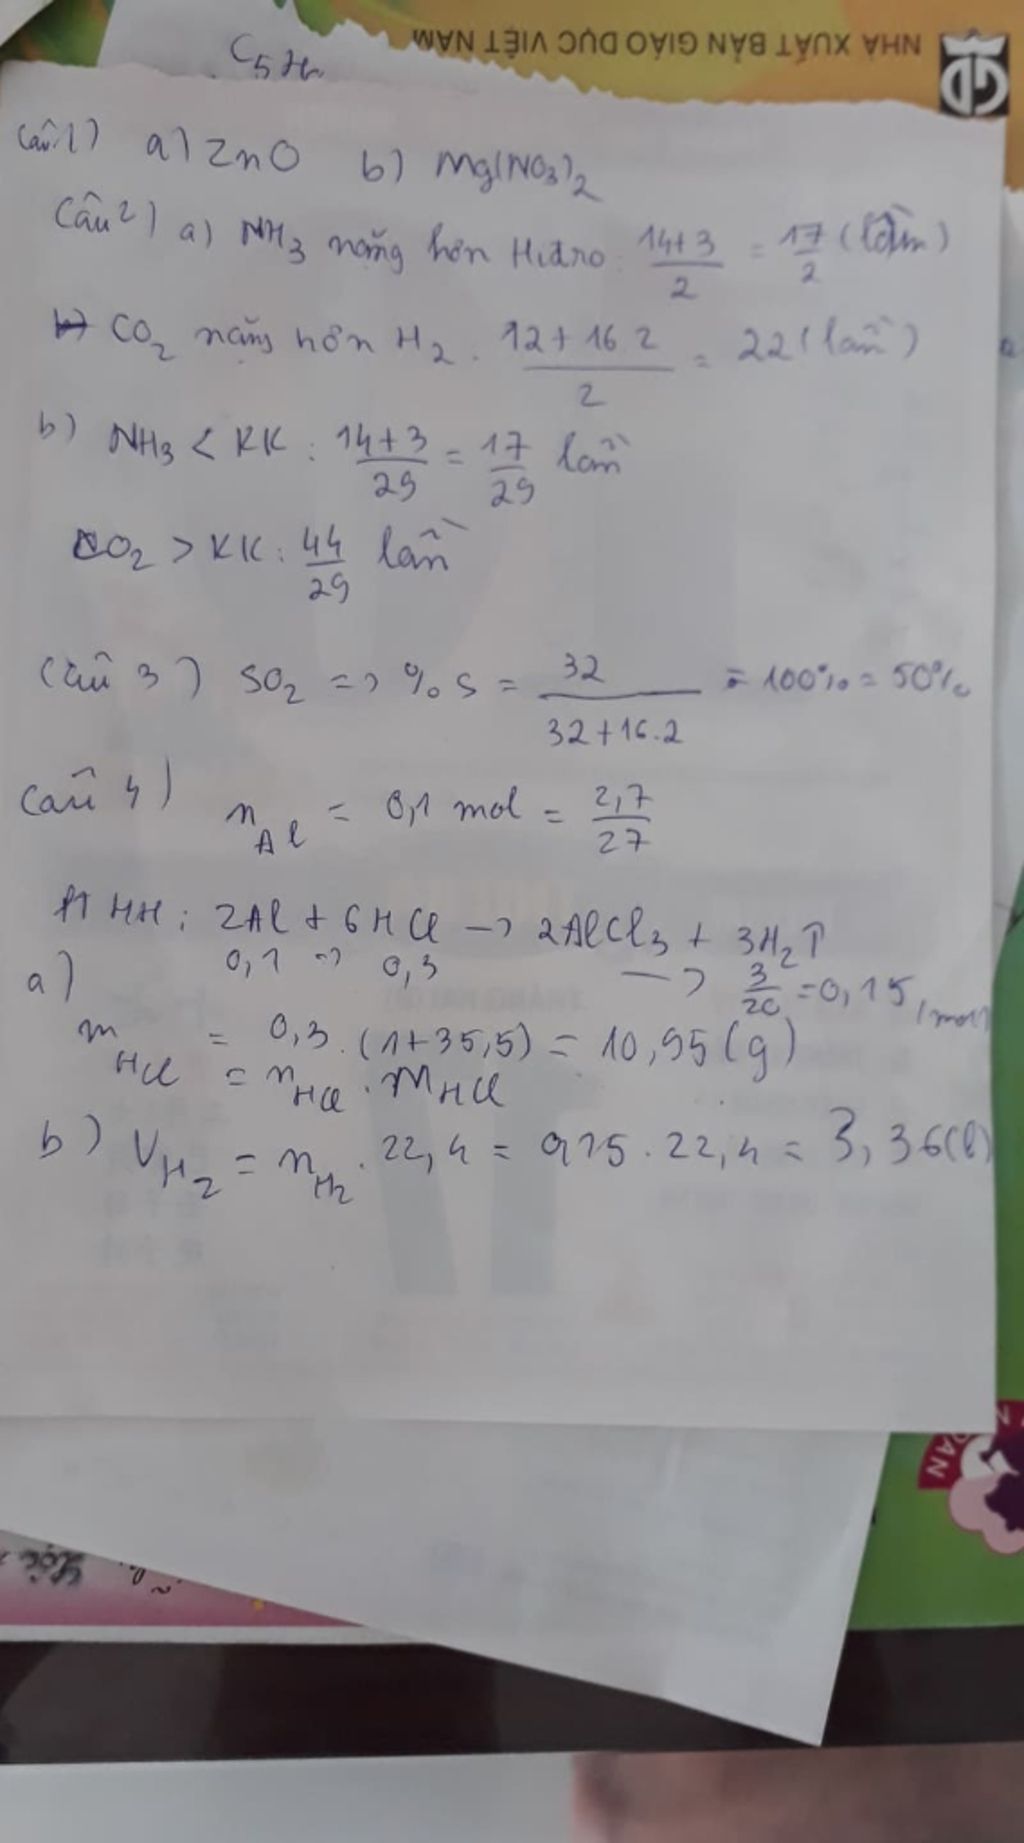 NHÀ XUẤT BẢN GIÁO DỤC VIỆT NAM
GD
C5H
Câu 1) a) ZnO b) Mg(NO3)2
Câu 2) a) NH3 nặng hơn Hiđro: 14+3/2 = 17/2 (lần)
CO2 nặng hơn H2: 12+16.2/2 = 22 (lần)
b) NH3 < KK: 14+3/29 = 17/29 lần
CO2 > KK: 44/29 lần
Câu 3) SO2 => %S = 32/32+16.2 = 100% = 50%
Câu 4) nAl = 0,1 mol = 2,7/27
PTHH: 2Al + 6HCl -> 2AlCl3 + 3H2↑
a) 0,1 -> 0,3 -> 3/20 = 0,15 (mol)
mHCl = 0,3.(1+35,5) = 10,95(g)
= nHCl.MHCl
b) VH2 = nH2.22,4 = 0,15.22,4 = 3,36(l)